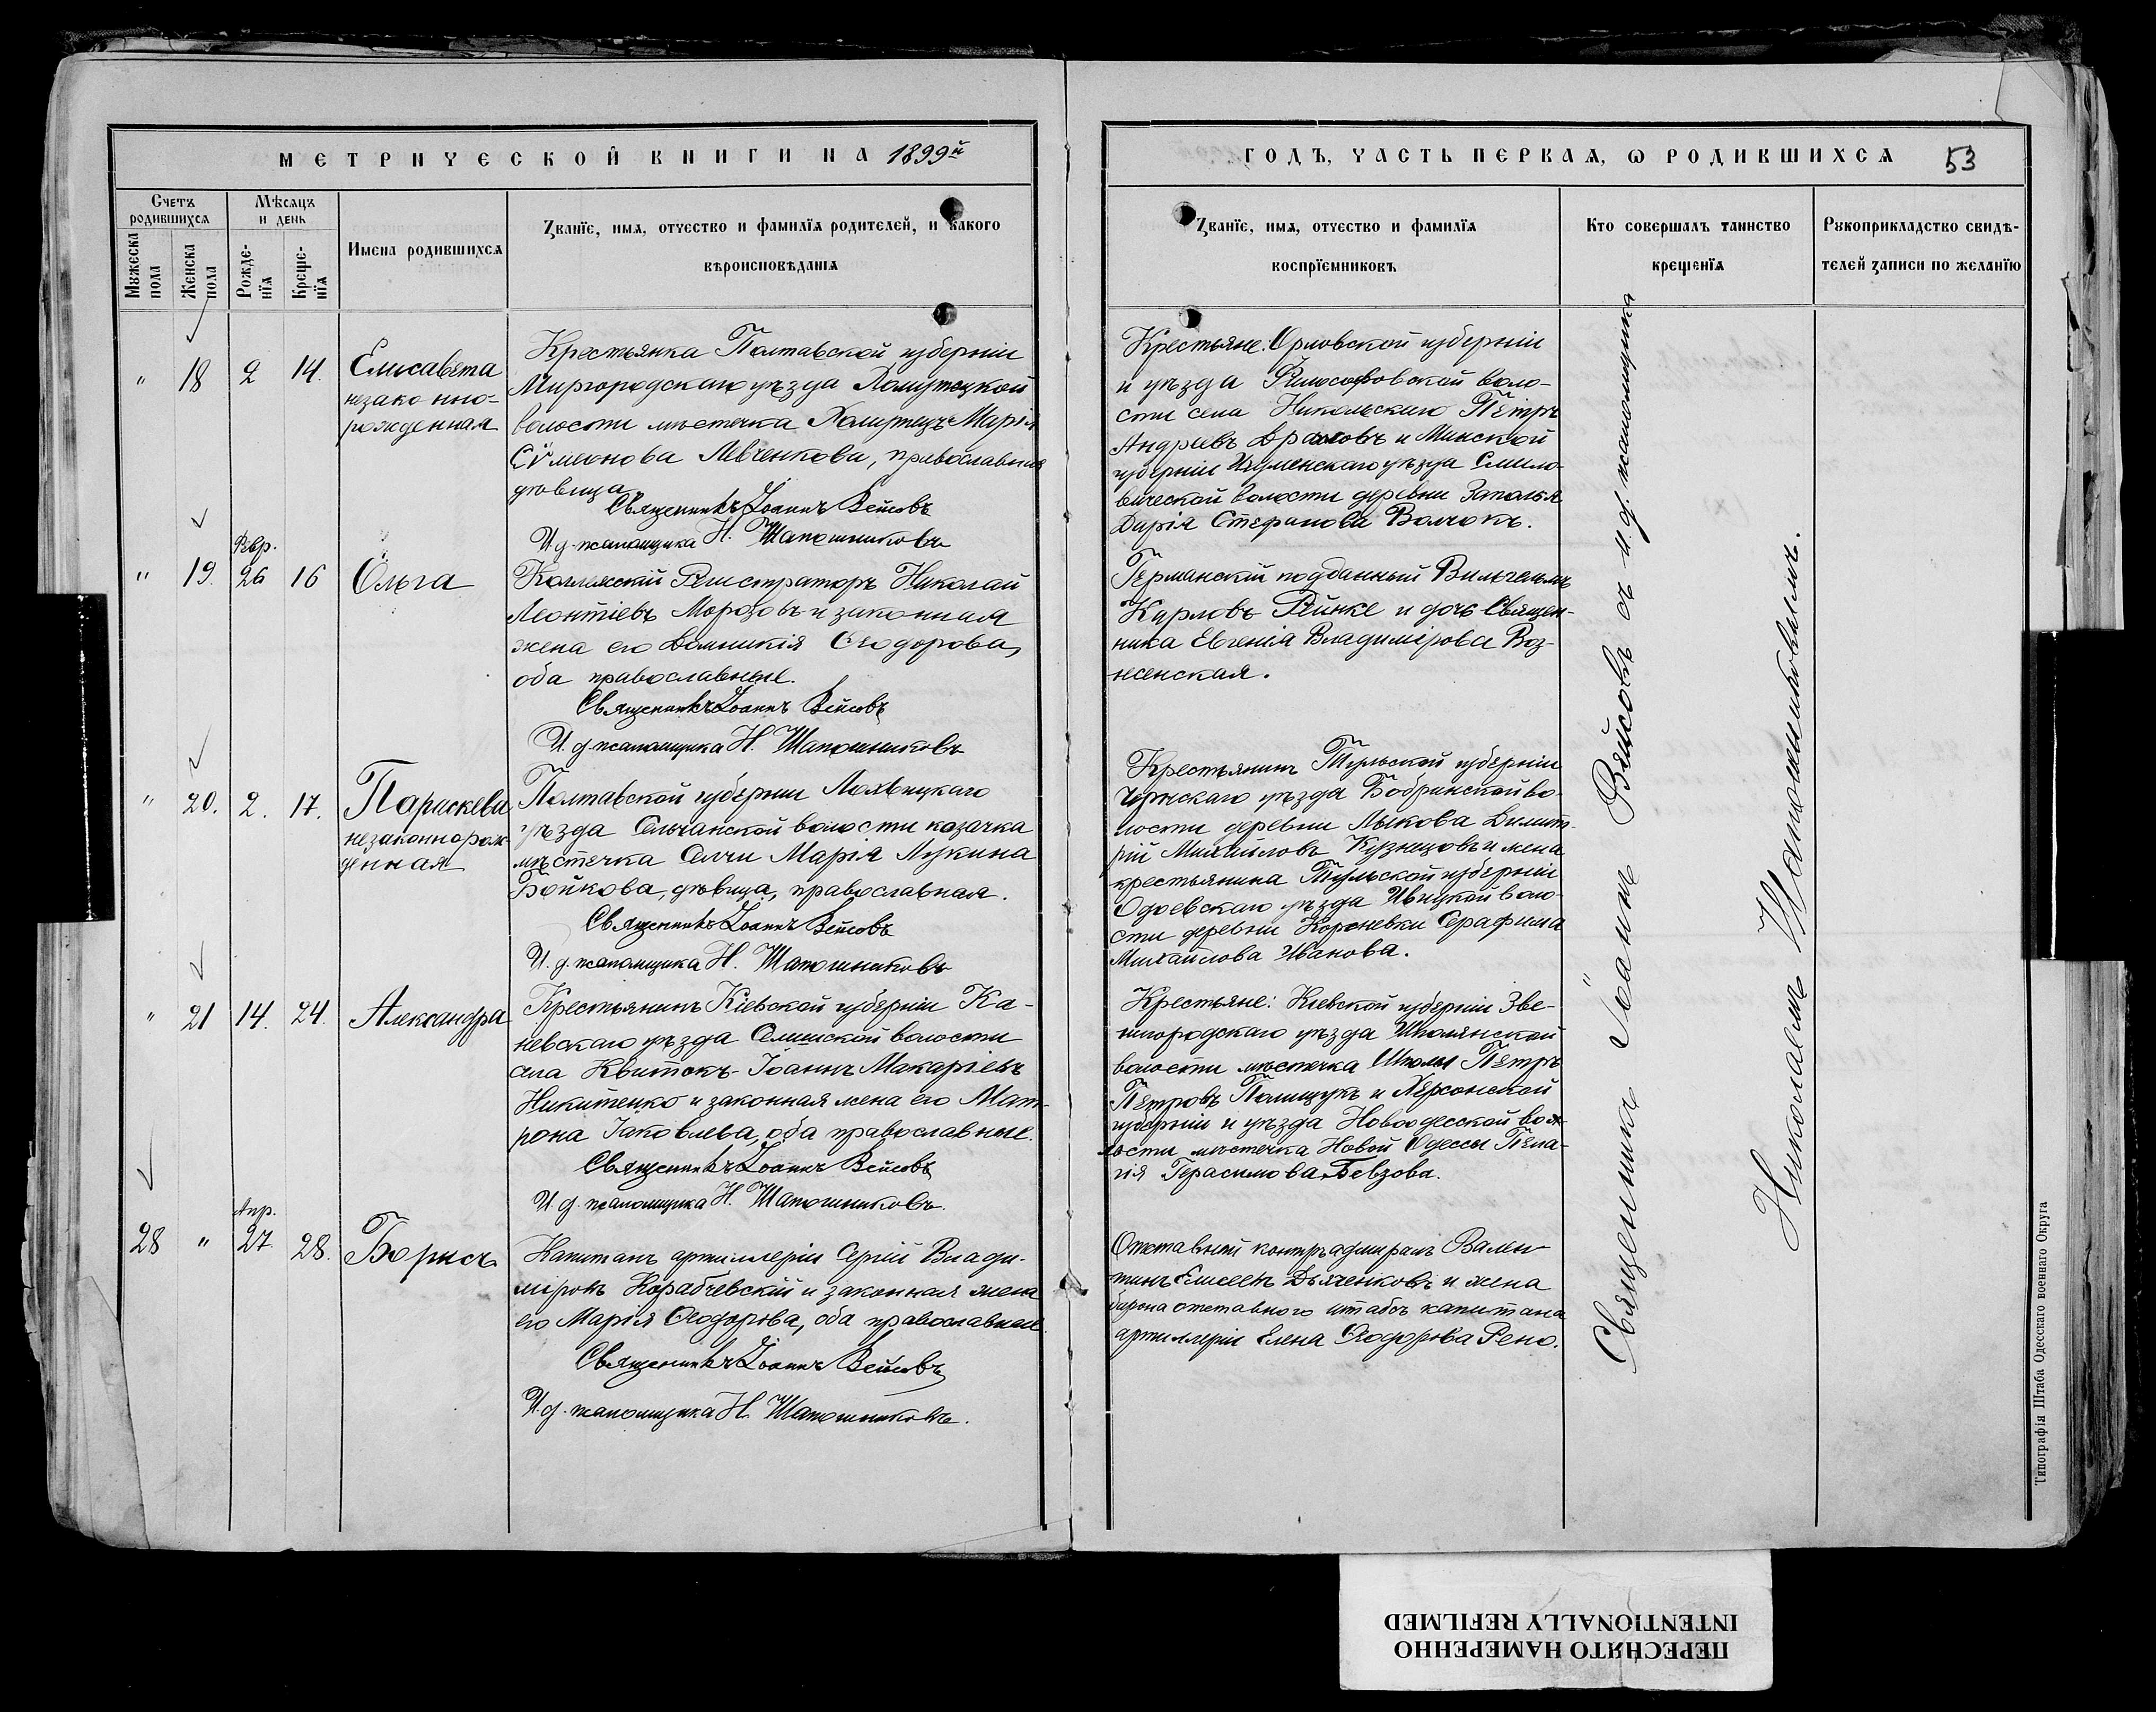 МЕТРИЧЕСКОЙ КНИГИ НА 1899й
ГОДЪ, ЧАСТЬ ПЕРВАЯ, Ѡ РОДИВШИХСЯ
53
Счетъ родившихся
Мѣсяцъ и день
Мужеска пола
Женска пола
Рожденїя
Крещенїя
Имена родившихся
Званїе, имя, отчество и фамилїя родителей, и какого
вѣроисповѣданія
Званїе, имя, отчество и фамилїя
воспрїемниковъ
Кто совершалъ таинство
крещенїя
Рукоприкладство свидѣ-
телей записи по желанїю
" 18 2 14.
Елисавета
незаконно-
рожденная
Крестьянка Полтавской губерніи
Миргородскаго уѣзда Хомутецкой
волости мѣстечка Хомутецъ Марія
Сѵмеонова Левченкова, православная
дѣвица
Священникъ Іоаннъ Вейсовъ
И. д. псаломщика Н. Шапошниковъ
Крестьяне: Орловской губерніи
и уѣзда Философовской воло-
сти села Никольскаго Петръ
Андреевъ и Минской
губерніи Игуменскаго уѣзда Смило-
вической волости деревни Заполья
Дарія Стефанова Волчокъ.
" 19. Февр. 26 16
Ольга
Коллежскій Регистраторъ Николай
Леонтіевъ Морозовъ и законная
жена его Домникія Ѳеодорова,
оба православные.
Священникъ Іоаннъ Вейсовъ
И. д. псаломщика Н. Шапошниковъ
Германскій подданный Вильгельмъ
Карловъ Рейнке и дочь Священ-
ника Евгенія Владимірова Воз-
несенская.
" 20. 2. 17.
Параскева
незаконнорож-
денная
Полтавской губерніи Лохвицкаго
уѣзда Сенчанской волости козачка
мѣстечка Сенчи Марія Лукина
Бойкова, дѣвица, православная.
Священникъ Іоаннъ Вейсовъ
И. д. псаломщика Н. Шапошниковъ
Крестьянинъ Тульской губерніи
Чернскаго уѣзда Бобринской во-
лости деревни Лыкова Димит-
рій Михайловъ Кузнецовъ и жена
крестьянина Тульской губерніи
Одоевскаго уѣзда Ивицкой воло-
сти деревни Короневки Серафима
Михайлова Иванова.
" 21 14. 24.
Александра
Крестьянинъ Кіевской губерніи Ка-
невскаго уѣзда волости
села Квитокъ Іоаннъ Макаріевъ
Никитенко и законная жена его Мат-
рона Іаковлева, оба православные.
Священникъ Іоаннъ Вейсовъ
И. д. псаломщика Н. Шапошниковъ.
Крестьяне: Кіевской губерніи Зве-
нигородскаго уѣзда Шполянской
волости мѣстечка Шполы Петръ
Петровъ Полищукъ и Херсонской
губерніи и уѣзда Новоодесской во-
лости мѣстечка Новой Одессы Пела-
гія Герасимова Бевзова.
28 " Апр. 27 28.
Борисъ
Капитанъ артиллеріи Сергій Влади-
міровъ Корабчевскій и законная жена
его Марія Ѳеодорова, оба православные
Священникъ Іоаннъ Вейсовъ
И. д. псаломщика Н. Шапошниковъ.
Отставной контръ адмиралъ Вален-
тинъ Елисеевъ Дьяченковъ и жена
барона отставного штабсъ капитана
артиллеріи Елена Ѳеодорова Рено.
Священникъ Іоаннъ Вейсовъ съ и. д. псаломщика
Николаемъ Шапошниковымъ.
Типографія Штаба Одесскаго военнаго Округа
ПЕРЕСНЯТО НАМЕРЕННО
INTENTIONALLY REFILMED